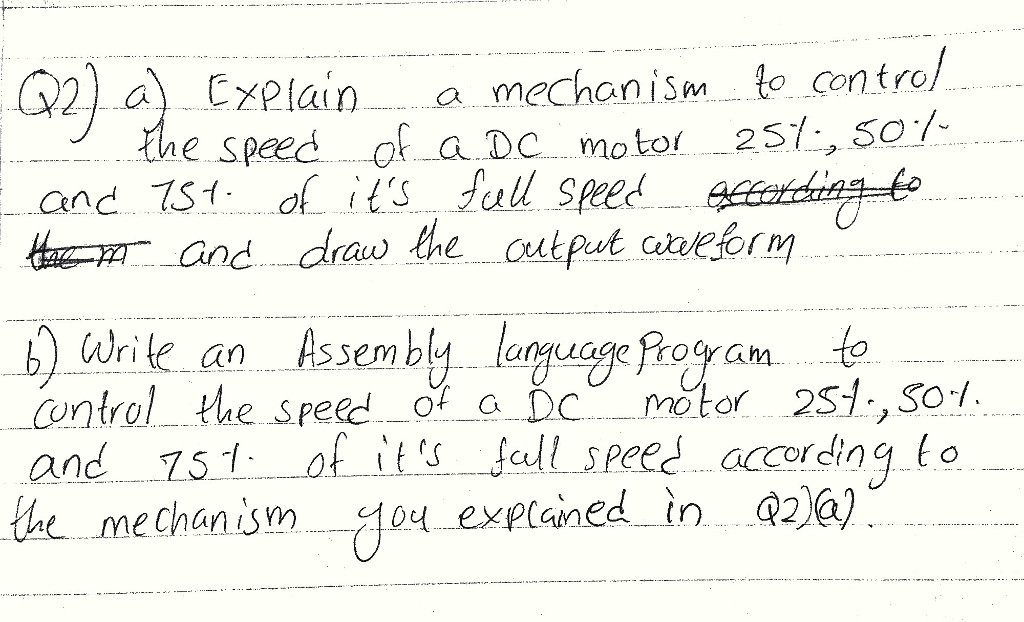 Q2) a) Explain a mechanism to control
the speed of a DC motor 25%, 50%
and 75% of it's full speed according to
them and draw the output waveform
b) Write an Assembly language Program to
control the speed of a DC motor 25%, 50%
and 75% of it's full speed according to
the mechanism you explained in Q2)(a).